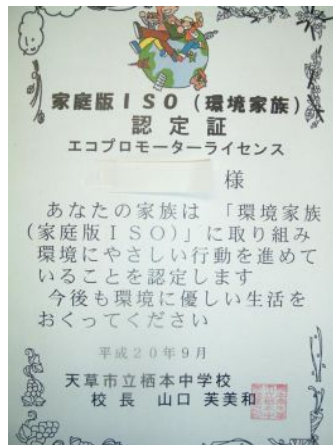 家庭版ISO（環境家族）
認定証
エコプロモーターライセンス
様
あなたの家族は 「環境家族
(家庭版ISO)」に取り組み
環境にやさしい行動を進めて
いることを認定します
今後も環境に優しい生活を
おくってください
平成20年9月
天草市立栖本中学校
校長 山口 芙美和